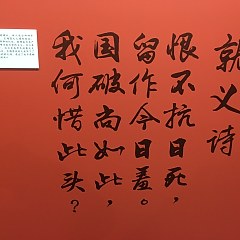 就义诗
恨不抗日死，
留作今日羞。
国破尚如此，
我何惜此头？